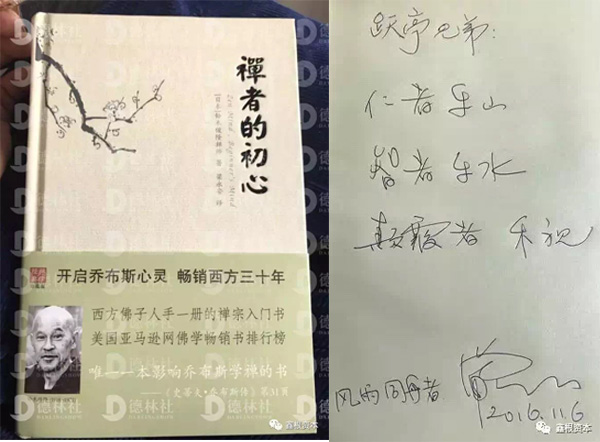 禪者的初心
Zen Mind, Beginner's Mind
开启乔布斯心灵 畅销西方三十年
西方佛子人手一册的禅宗入门书
美国亚马逊网佛学畅销书排行榜
唯一一本影响乔布斯学禅的书
——《史蒂夫·乔布斯传》
德林社
鑫根资本
跃亭兄弟:
仁者乐山
智者乐水
颠覆者 乐视
风雨同舟者
2016.11.6
鑫根资本